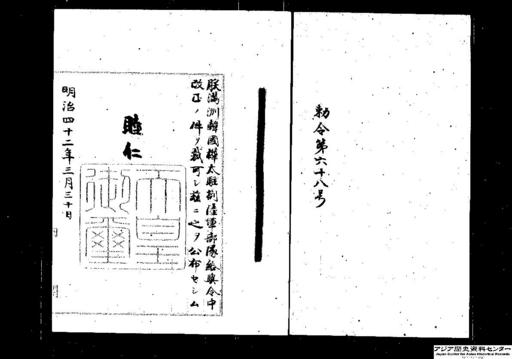 勅令第六十八号
朕満洲韓國樺太駐劄陸軍部隊給與令中
改正ノ件ヲ裁可シ茲ニ之ヲ公布セシム
睦仁
天皇
御璽
明治四十二年三月三十日
アジア歴史資料センター
Japan Center for Asian Historical Records